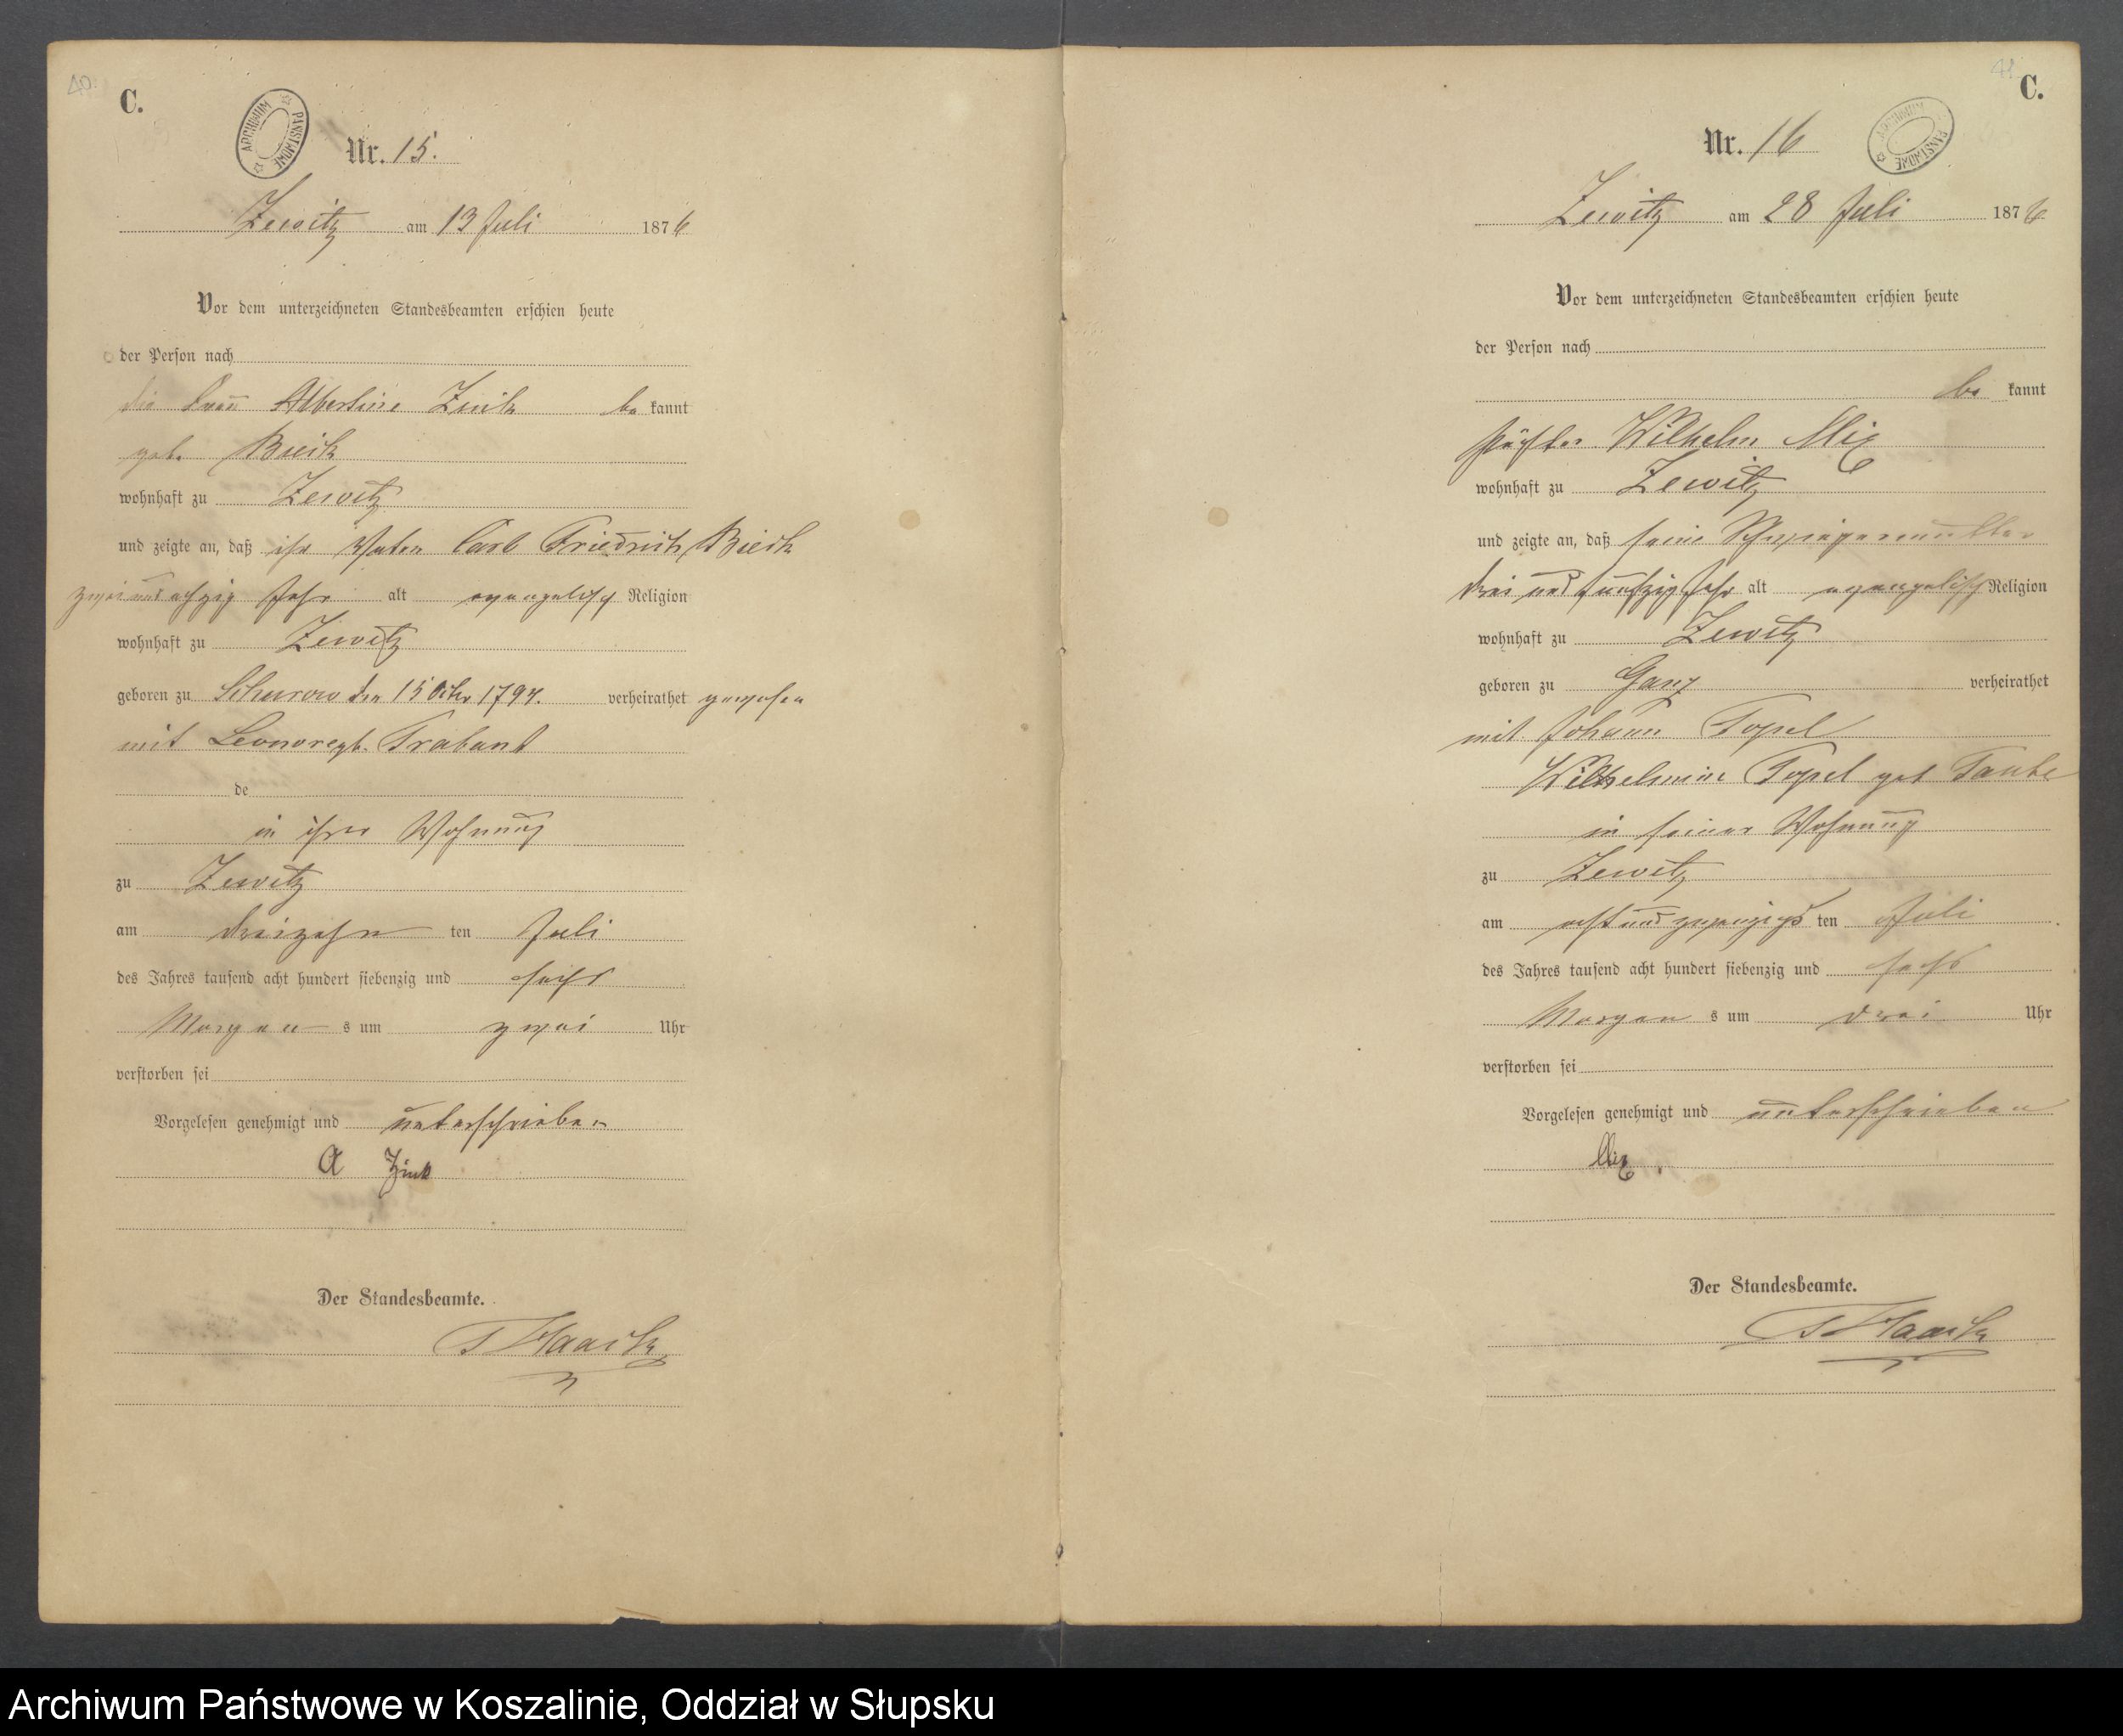 40.
C.
ARCHIWUM PAŃSTWOWE
Nr. 15.
Zewitz am 13 Juli 1876
Vor dem unterzeichneten Standesbeamten erschien heute
der Person nach
die Frau Albertine Zink be kannt
geb. Bieck
wohnhaft zu Zewitz
und zeigte an, daß ihr Vater Carl Friedrich Bieck
zweiundachzig Jahr alt evangelisch Religion
wohnhaft zu Zewitz
geboren zu Schurow den 15 1794. verheirathet gewesen
mit Leonore gb. Trabant
de
in ihrer Wohnung
zu Zewitz
am dreizehn ten Juli
des Jahres tausend acht hundert siebenzig und sechs
Morgen s um zwei Uhr
verstorben sei
Vorgelesen genehmigt und unterschrieben
A Zink
Der Standesbeamte.
Haack
41
C.
ARCHIWUM PAŃSTWOWE
Nr. 16
Zewitz am 28 Juli 1876
Vor dem unterzeichneten Standesbeamten erschien heute
der Person nach
be kannt
Pächter Wilhelm Mix
wohnhaft zu Zewitz
und zeigte an, daß seine Schwiegermutter
drei und funfzig Jahr alt evangelisch Religion
wohnhaft zu Zewitz
geboren zu Ganz verheirathet
mit Johann Topel
Wilhelmine Topel geb Taube
in seiner Wohnung
zu Zewitz
am achtundzwanzigs ten Juli
des Jahres tausend acht hundert siebenzig und sechs
Morgen s um drei Uhr
verstorben sei
Vorgelesen genehmigt und unterschrieben
Mix
Der Standesbeamte.
Haack
Archiwum Państwowe w Koszalinie, Oddział w Słupsku